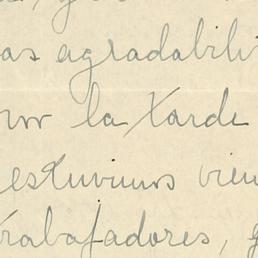 as agradabili
por la tarde
estuvimos vien
trabajadores,